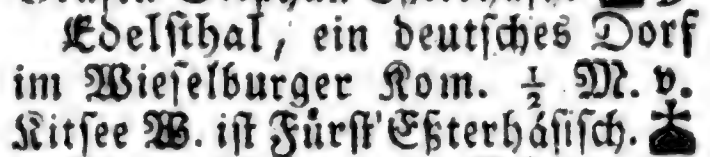 Edelſthal, ein deutſches Dorf
im Wieſelburger Kom. ½ M. v.
Kitſee W. iſt Fürſt Eßterháſiſch.